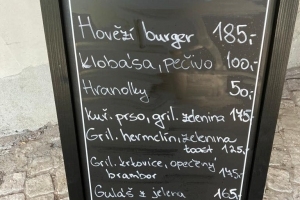 Hovězí burger 185,-
Klobása, pečivo 100,-
Hranolky 50,-
Kuř. prso, gril. zelenina 175,-
Gril. hermelín, zelenina
toast 125,-
Gril. krkovice, opečený
brambor 175,-
Guláš z jelena 165,-